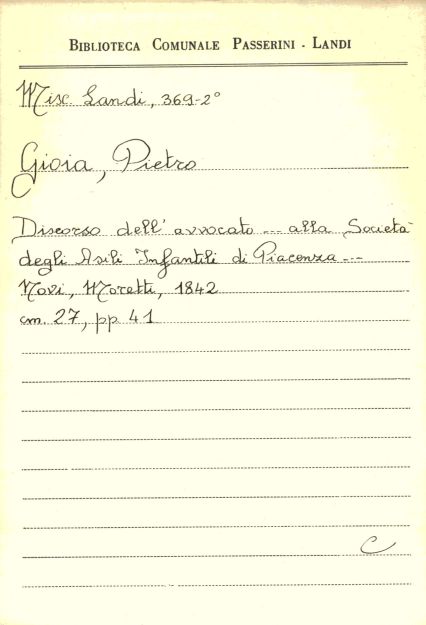 BIBLIOTECA COMUNALE PASSERINI - LANDI
Misc. Landi, 369-2°
Gioia, Pietro
Discorso dell'avvocato --- alla Società
degli Asili Infantili di Piacenza ---
Novi, Moretti, 1842
cm. 27, pp 41
C